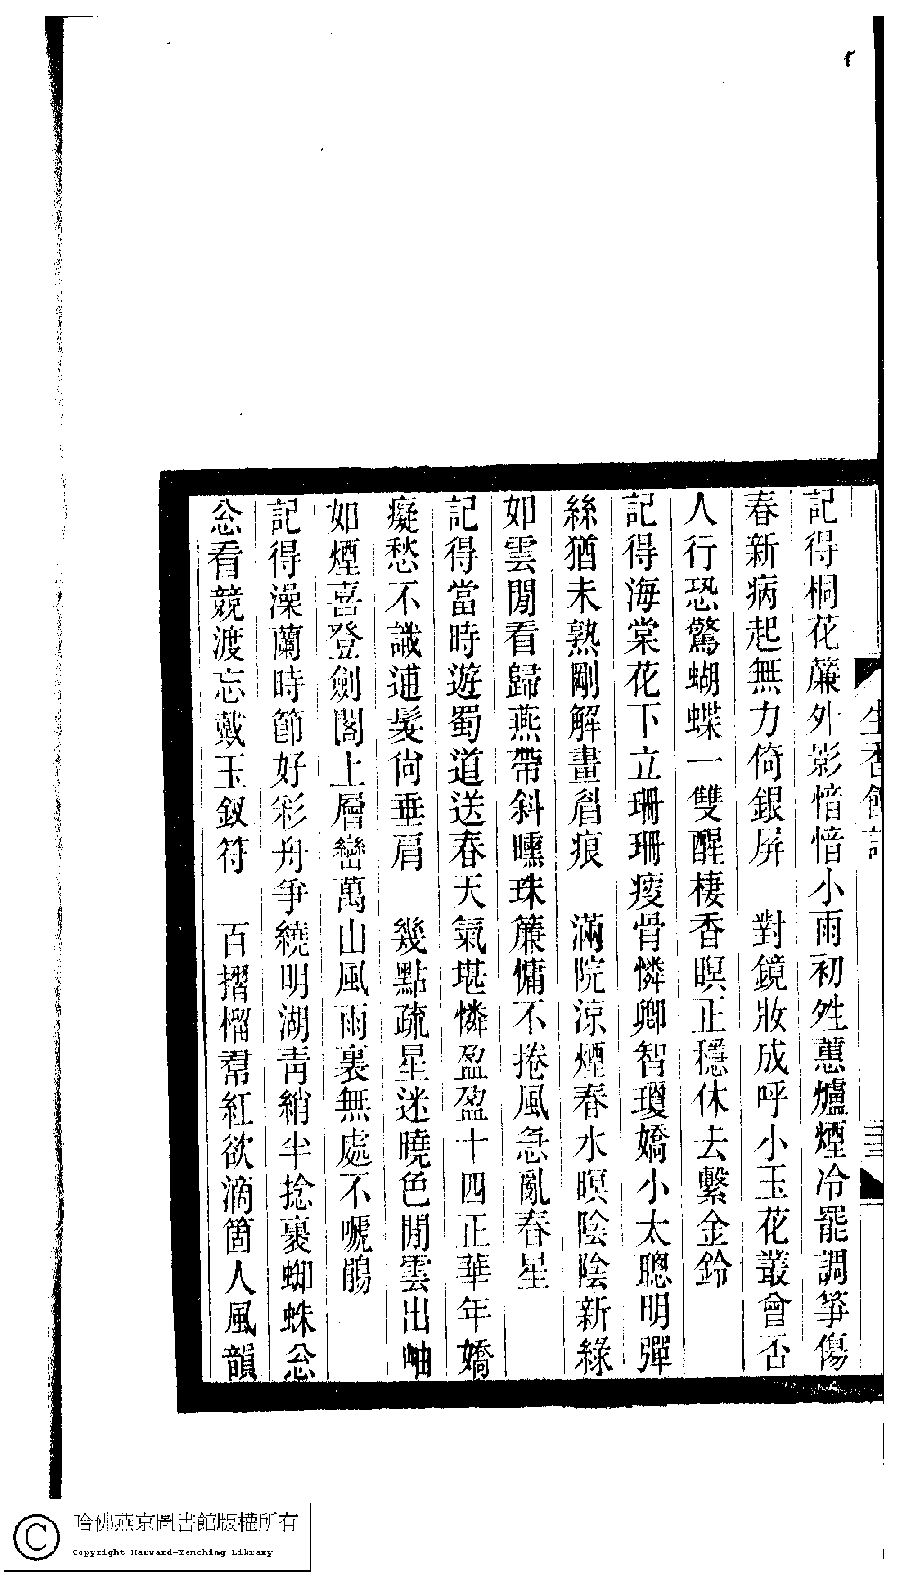 記得桐花簾外影愔愔小雨初甡蕙爐煙冷罷調箏傷
春新病起無力倚銀屏　對鏡妝成呼小玉花叢會否
人行恐驚蝴蝶一雙醒棲香暝正穩休去繫金鈴
記得海棠花下立珊珊瘦骨憐卿智瓊嬌小太聰明彈
絲猶未熟剛解畫眉痕　滿院涼煙春水暝陰陰新綠
如雲閒看歸燕帶斜曛珠簾慵不捲風急亂春星
記得當時遊蜀道送春天氣堪憐盈盈十四正華年嬌
癡愁不識逋髮尙垂肩　幾點疏星迷曉色閒雲出岫
如煙喜登劍閣上層巒萬山風雨裏無處不嗁鵑
記得澡蘭時節好彩舟爭繞明湖靑綃半捻裹蜘蛛忩
忩看競渡忘戴玉釵符　百摺榴帬紅欲滴箇人風韻
生香館詞
三三
哈佛燕京圖書館版權所有
Copyright Harvard-Yenching Library